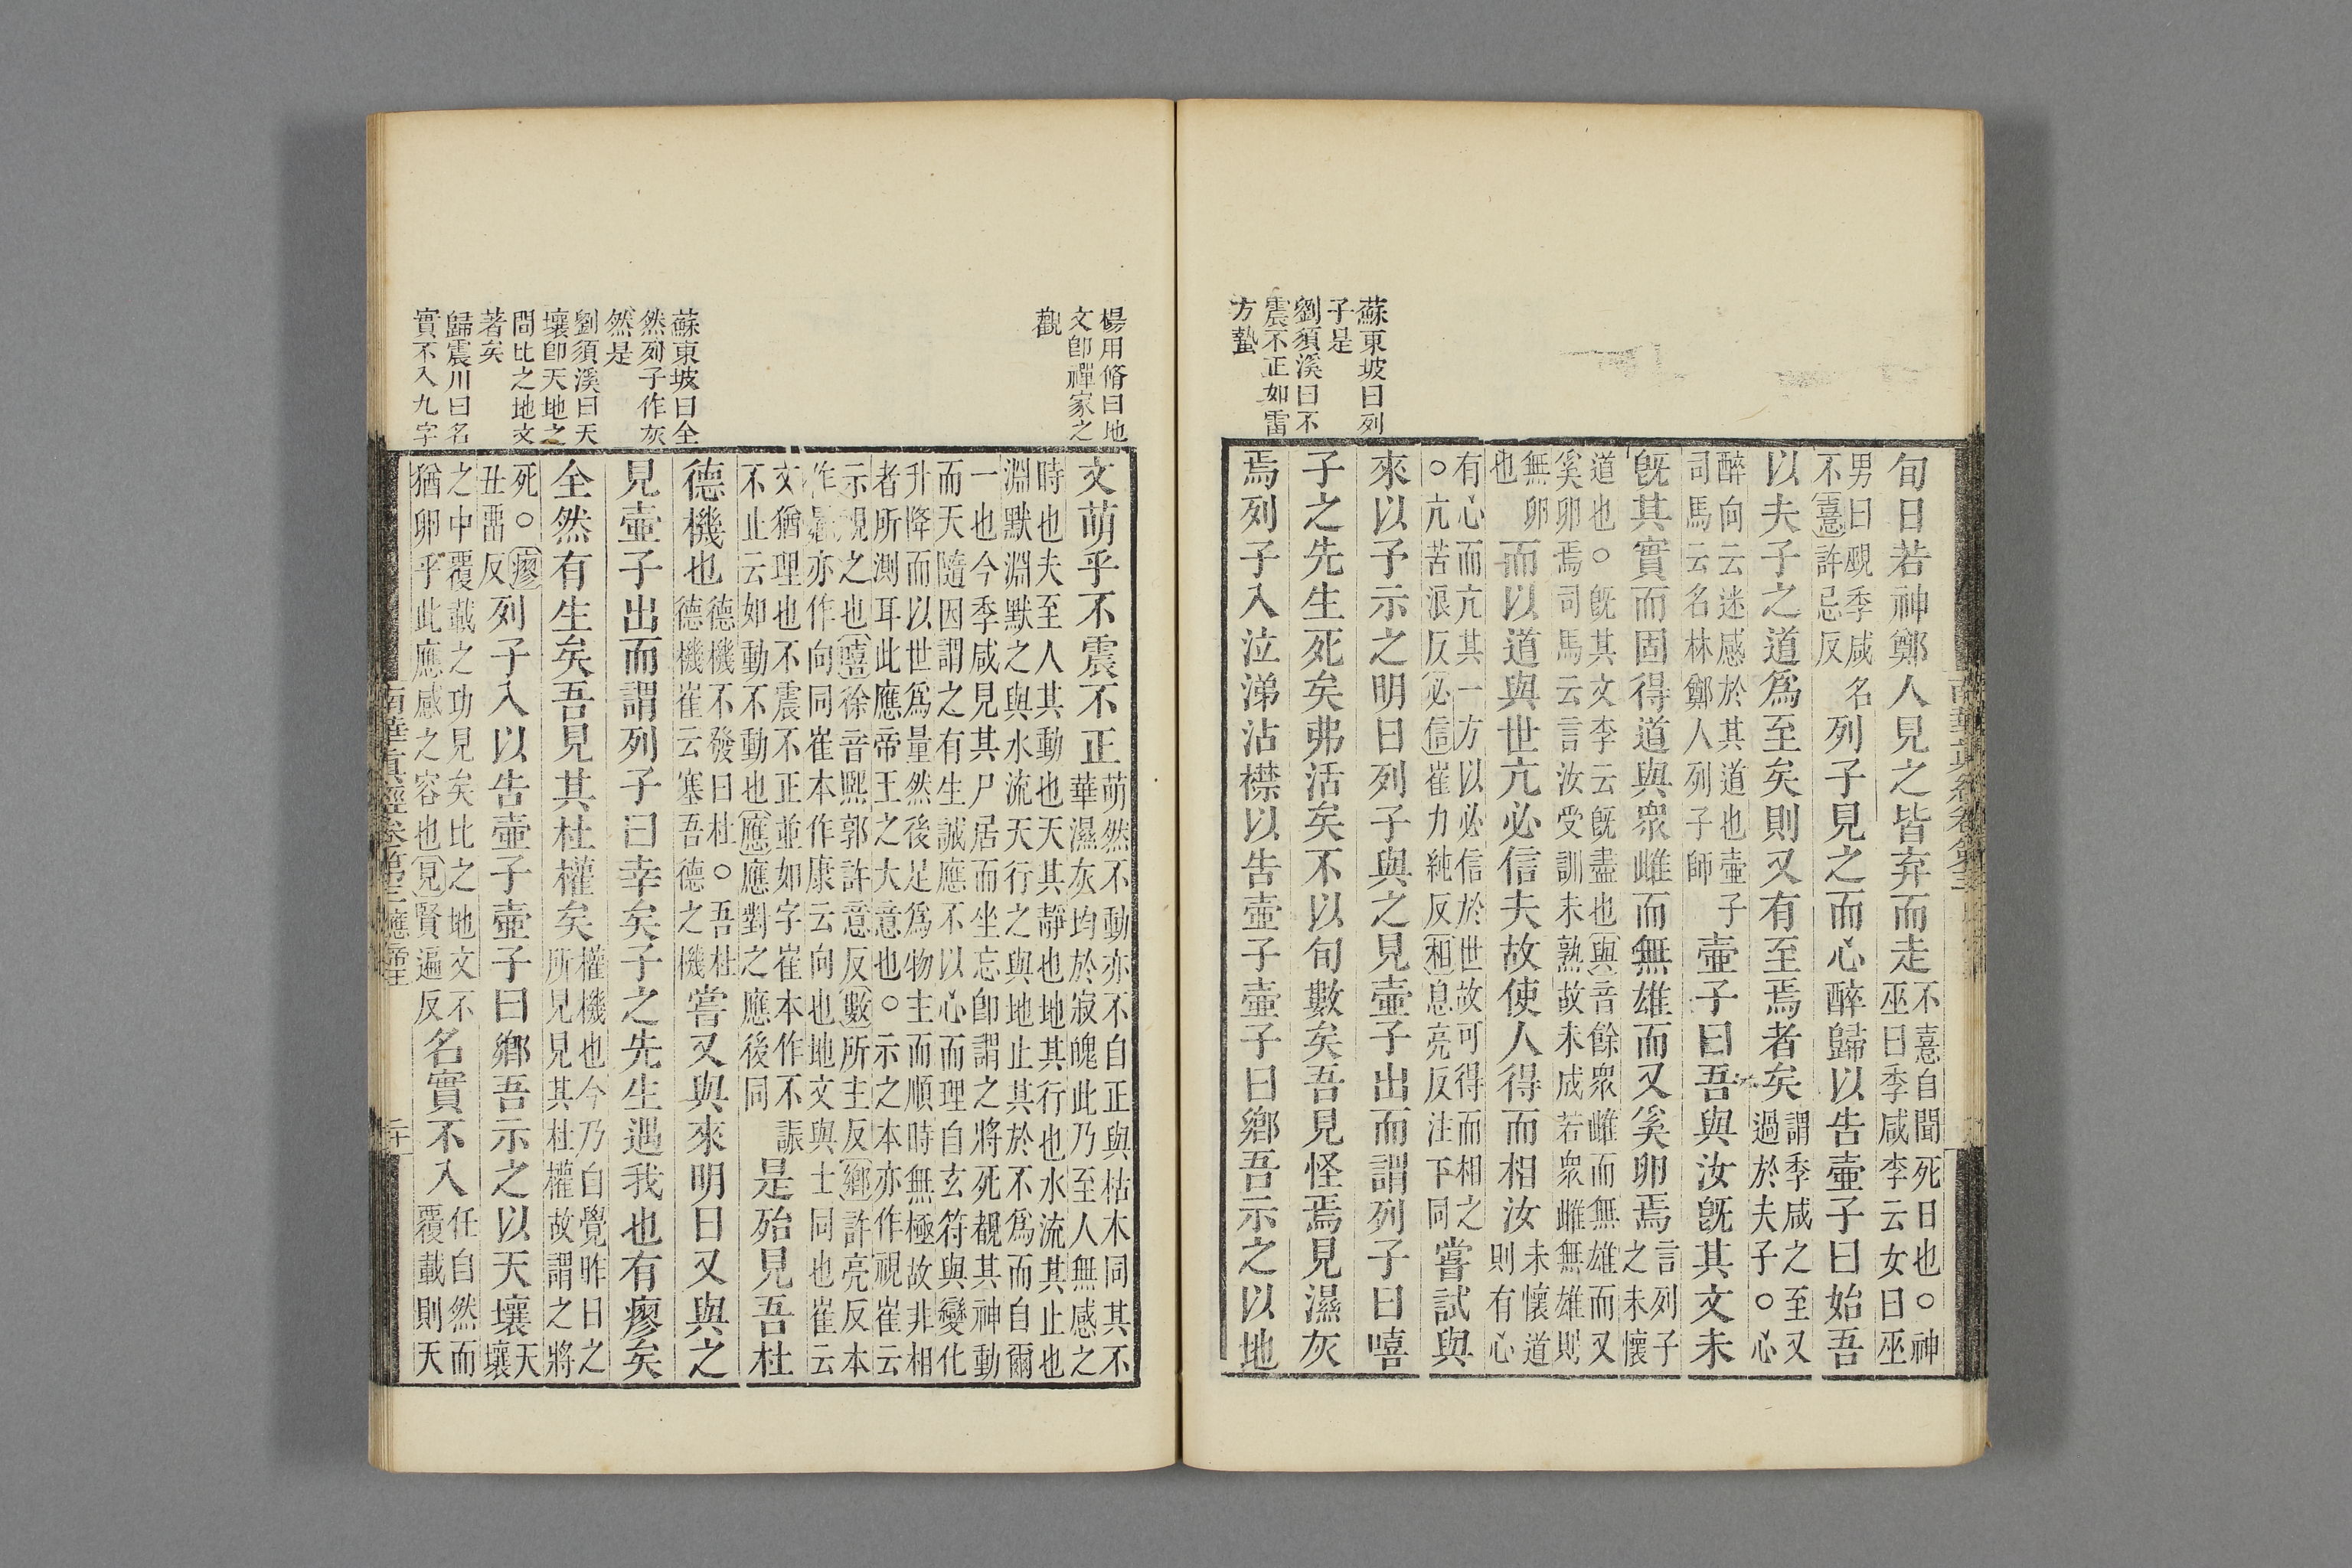 蘇東坡曰列
子是
劉須溪曰不
震不正如雷
方蟄
旬日若神鄭人見之皆弃而走不憙自聞死日也○神
巫曰季咸李云女曰巫
男曰覡季咸名
不憙許忌反列子見之而心醉歸以告壺子曰始吾
以夫子之道爲至矣則又有至焉者矣謂季咸之至又
過於夫子○心
醉向云迷感於其道也壺子
司馬云名林鄭人列子師壺子曰吾與汝旣其文未
旣其實而固得道與衆雌而無雄而又奚卵焉言列子
之未懷
道也○旣其文李云旣盡也與音餘衆雌而無雄而又
奚卵焉司馬云言汝受訓未熟故未成若衆雌無雄則
無卵
也而以道與世亢必信夫故使人得而相汝未懷道
則有心
有心而亢其一方以必信於世故可得而相之
○亢苦浪反必信崔力純反相息亮反注下同嘗試與
來以予示之明日列子與之見壺子出而謂列子曰嘻
子之先生死矣弗活矣不以旬數矣吾見怪焉見濕灰
焉列子入泣涕沾襟以告壺子壺子曰鄉吾示之以地
楊用脩曰地
文卽禪家之
觀
蘇東坡曰全
然列子作灰
然是
劉須溪曰天
壤卽天地之
間比之地文
著矣
歸震川曰名
實不入九字
文萌乎不震不正萌然不動亦不自正與枯木同其不
華濕灰均於寂魄此乃至人無感之
時也夫至人其動也天其靜也地其行也水流其止也
淵默淵默之與水流天行之與地止其於不爲而自爾
一也今季咸見其尸居而坐忘卽謂之將死覩其神動
而天隨因謂之有生誠應不以心而理自玄符與變化
升降而以世爲量然後足爲物主而順時無極故非相
者所測耳此應帝王之大意也○示之本亦作視崔云
示視之也嘻徐音熙郭許意反數所主反鄉許亮反本
作曏亦作向同崔本作康云向也地文與士同也崔云
文猶理也不震不正並如字崔本作不誫
不止云如動不動也應應對之應後同是殆見吾杜
德機也德機不發曰杜○吾杜
德機崔云塞吾德之機嘗又與來明日又與之
見壺子出而謂列子曰幸矣子之先生遇我也有瘳矣
全然有生矣吾見其杜權矣權機也今乃自覺昨日之
所見見其杜權故謂之將
死○瘳
丑畱反列子入以告壺子壺子曰鄉吾示之以天壤天
壤
之中覆載之功見矣比之地文不
猶卵乎此應感之容也見賢遍反名實不入任自然而
覆載則天
南華眞經卷第三應帝王
二十